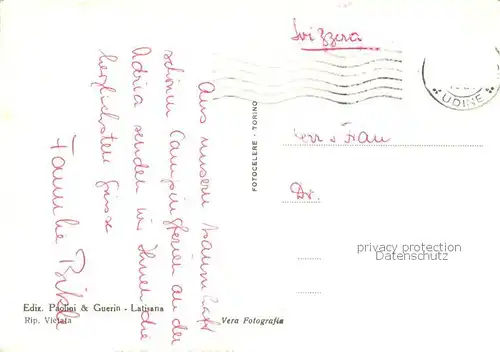 Svizzera
UDINE
Aus unserm traumhaft
schönen Campingferien an der
Adria senden wir Ihnen die
herzlichsten Grüsse
Familie
FOTOCELERE - TORINO
Herr & Frau
Dr.
privacy protection
oldthing.de
Ediz. Paolini & Guerin - Latisana
Rip. Vietata
Vera Fotografia